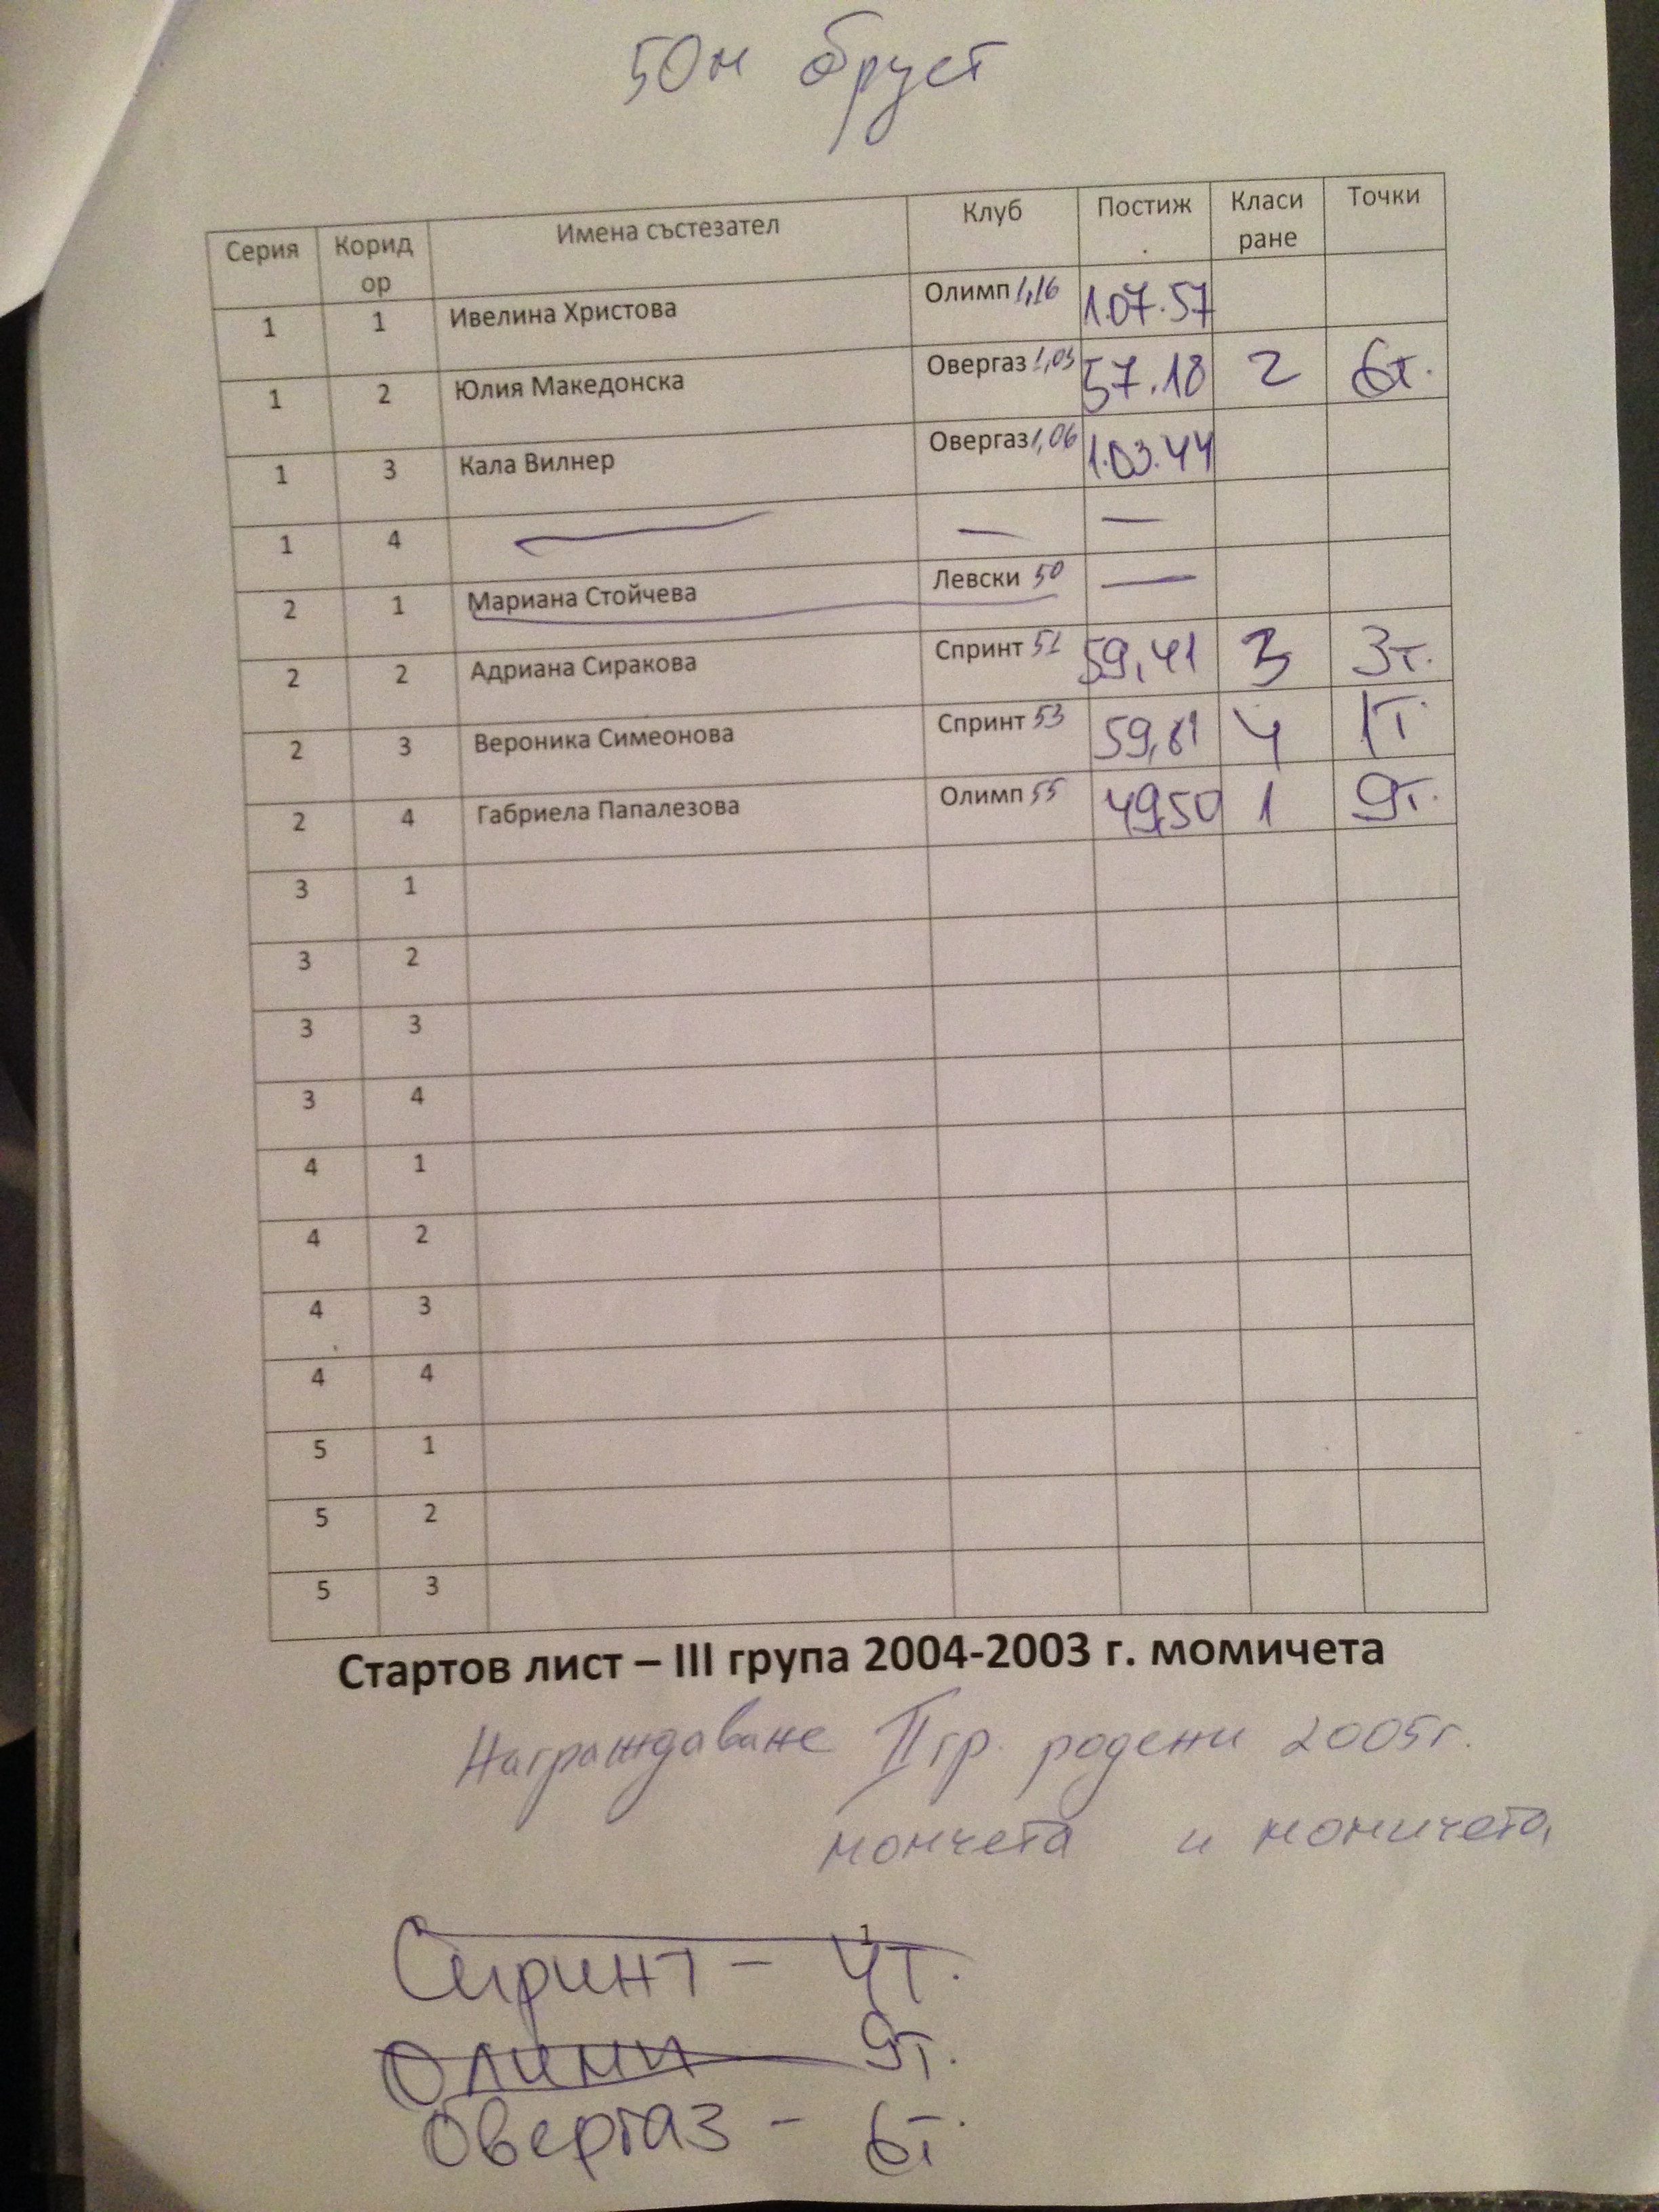 50м бруст
Серия Коридор Имена състезател Клуб Постиж. Класиране Точки
1 1 Ивелина Христова Олимп 1,16 1.07.57
1 2 Юлия Македонска Овергаз 1,03 57.18 2 6т.
1 3 Кала Вилнер Овергаз 1,06 1.03.44
1 4 — — —
2 1 Мариана Стойчева Левски 50 —
2 2 Адриана Сиракова Спринт 51 59,41 3 3т.
2 3 Вероника Симеонова Спринт 53 59,81 4 1т.
2 4 Габриела Папалезова Олимп 55 49,50 1 9т.
3 1
3 2
3 3
3 4
4 1
4 2
4 3
4 4
5 1
5 2
5 3
Стартов лист – III група 2004-2003 г. момичета
Награждаване II гр. родени 2005г.
момчета и момичета
1
Спринт – 4т.
Олимп 9т.
Овергаз – 6т.